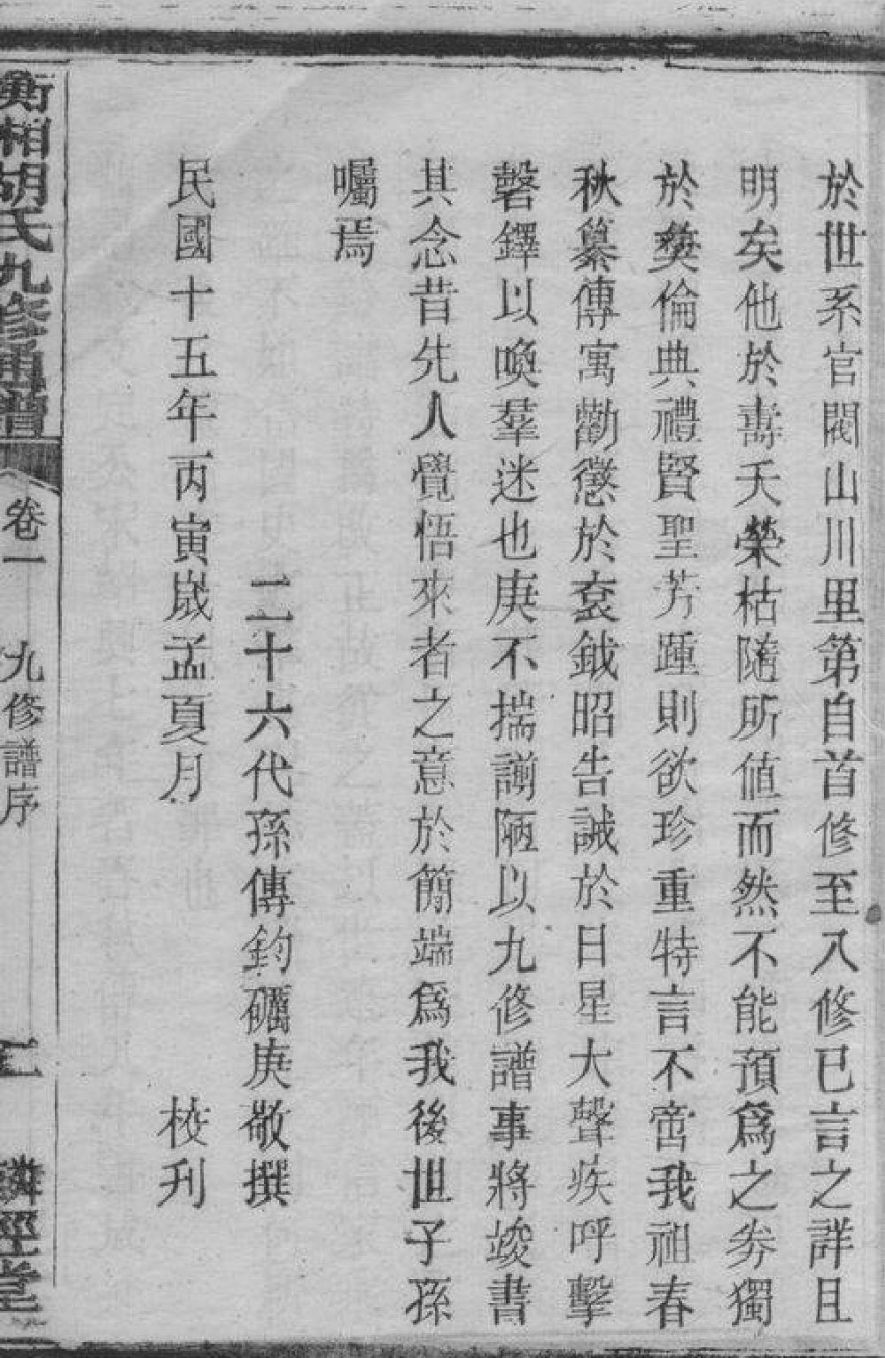 於世系官閥山川里第自首修至八修已言之詳且
明矣他於壽夭榮枯隨所値而然不能預爲之劵獨
於彝倫典禮賢聖芳踵則欲珍重特言不啻我祖春
秋纂傳寓勸懲於袞鉞昭告誡於日星大聲疾呼擊
磬鐸以喚羣迷也庚不揣謭陋以九修譜事將竣書
其念昔先人覺悟來者之意於簡端爲我後世子孫
囑焉
二十六代孫傳鈞礪庚敬撰
民國十五年丙寅歲孟夏月 校刋
衡湘胡氏九修通譜 卷一 九修譜序 二 經堂